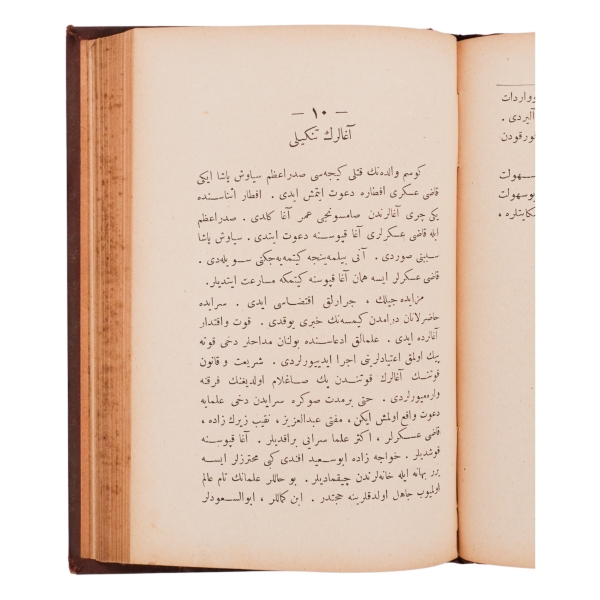 — ١٠ —
آغالرك تنكیلی
كوسم والده‌نك قتلی كیجه‌سی صدراعظم سیاوش پاشا ایكی
قاضی عسكری افطاره دعوت ایتمش ایدی . افطار اثناسنده
یكی چری آغالرندن صامسونجی عمر آغا كلدی . صدراعظم
ایله قاضی عسكرلری آغا قپوسنه دعوت ایتدی . سیاوش پاشا
سببنی صوردی . آنی بیلمه‌ینجه كیتمه‌یه‌جكنی سویله‌دی .
قاضی عسكرلر ایسه همان آغا قپوسنه كیتمكه مسارعت ایتدیلر .
مزایده‌جیلك ، جرارلق اقتضاسی ایدی . سرایده
حاضرلانان درامدن كیمسه‌نك خبری یوقدی . قوت واقتدار
آغالرده ایدی . علمالق ادعاسنده بولنان مداحلر دخی قوته
پیك اولمق اعتیادلرینی اجرا ایدییورلردی . شریعت و قانون
قوتنك آغالرك قوتندن پك صاغلام اولدیغنك فرقنه
واره‌میورلردی . حتی برمدت صوكره سرایدن دخی علمایه
دعوت واقع اولمش ایكن ، مفتی عبدالعزیز ، نقیب زیرك زاده ،
قاضی عسكرلر ، اكثر علما سرایی براقدیلر . آغا قپوسنه
قوشدیلر . خواجه زاده ابوسعید افندی كبی محترزلر ایسه
برر بهانه ایله خانه‌لرندن چیقمادیلر . بو حاللر علمانك تام عالم
اولیوب جاهل اولدقلرینه حجتدر . ابن كماللر ، ابوالسعودلر
وواردات
آلیردی .
سهولت
بوسهولت